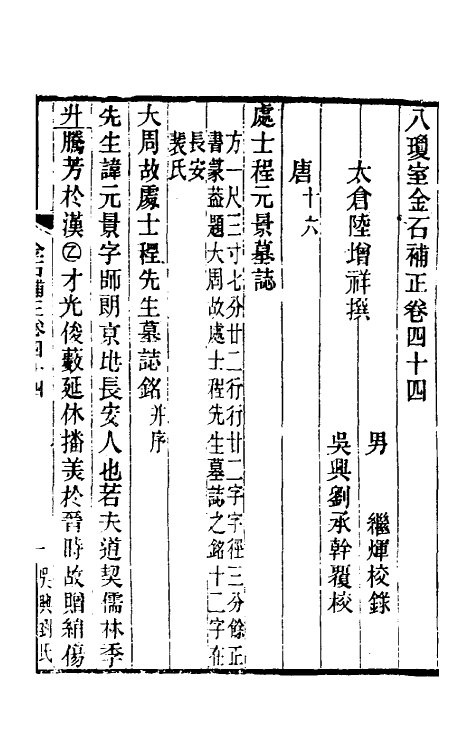 八瓊室金石補正卷四十四
太倉陸增祥撰
男 繼煇校錄
吳興劉承幹覆校
唐十六
處士程元景墓誌
方一尺三寸七分廿二行行廿二字字徑三分餘正
書篆蓋題大周故處士程先生墓誌之銘十二字在
長安
裴氏
大周故處士程先生墓誌銘并序
先生諱元景字師朗京地長安人也若夫道契儒林季
升騰芳於漢㔾才光俊藪延休播美於晉時故贈縞傷
金石補正卷四十四
一
吳興劉氏